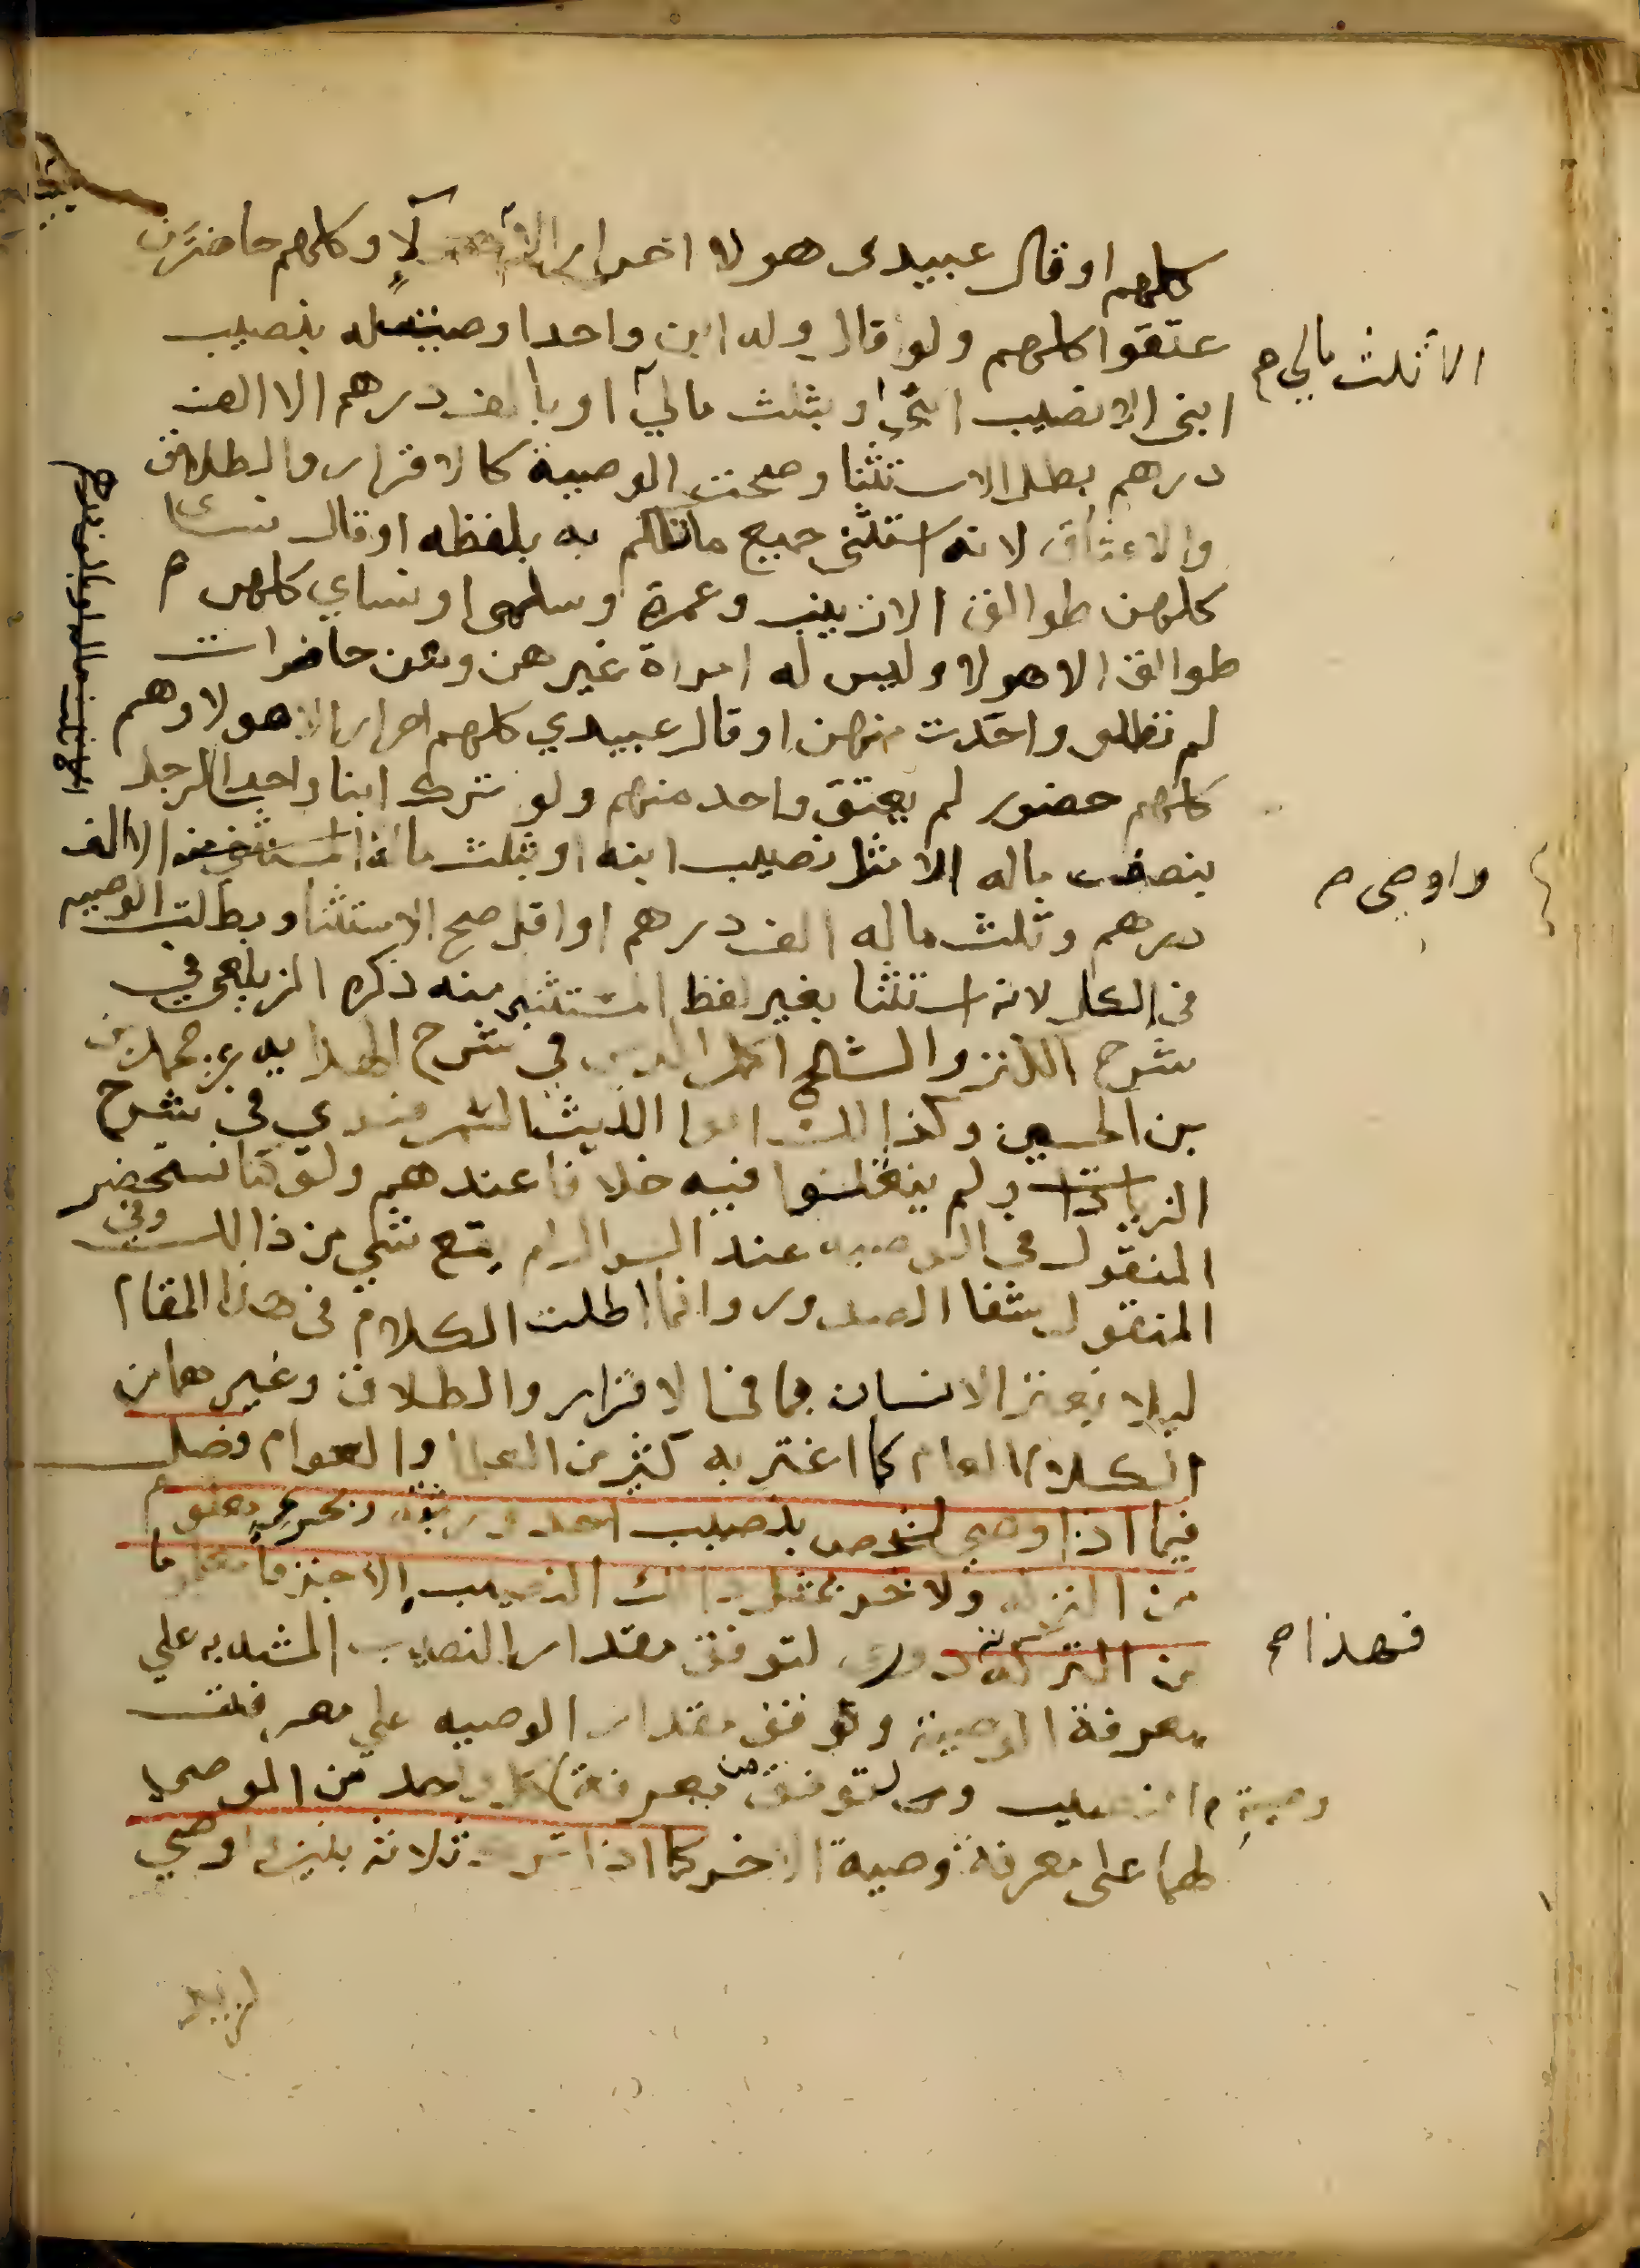 كلهم او قال عبيدي هولا احرار الا هولا وكلهم حاضرين
عتقوا كلهم ولو قال وله ابن واحدا وصيت له بنصيب
الا ثلث مالي م
ابني الا نصيب ابني او بثلث مالي او بالف درهم الا الف
درهم بطل الاستثنا وصحت الوصية كالاقرار والطلاق
والاعتاق لانه استثنى جميع ما تكلم به بلفظه او قال نساى
كلهن طوالق الا زينب وعمرة وسلمى او نساي كلهن م
طوالق الا هولا وليس له امراة غيرهن وهن حاضرات
لم تطلق واحدت منهن او قال عبيدي كلهم احرار الا هولا وهم
كلهم حضور لم يعتق واحد منهم ولو ترك ابنا واحدا لرجل
واوصى م
بنصف ماله الا مثل نصيب ابنه او بثلث ماله الا الف
درهم وثلث ماله الف درهم او اقل صح الاستثنا وبطلت الوصيه
في الكل لانه استثنا بغير لفظ المستثنى منه ذكره الزيلعي في
شرح الكنز والشيخ اكمل الدين في شرح الهدايه عن محمد بن
بن الحسين وكذا الك ابوا الليث السمرقندي في شرح
الزيادات ولم ينقلوا فيه خلافا عندهم ولو كنا نستحضر
المنقول في الوصيه عند السوال لم يقع شي من ذالك وفي
المنقول شفا الصدور وانما اطلت الكلام في هذا المقام
ليلا يغتر الانسان بما في الاقرار والطلاق وغيرهما من
الكلام العام كما اغتر به كثير من العلما والعوام فصل
فيما اذا اوصى لشخص بنصيب احد ورثته
من التركة ولاخر بمثل ذالك النصيب الا جزا
فهذا م
من التركة دور لتوقف مقدار النصيب المشبه به علي
معرفة الوصية وتوقف مقدار الوصيه علي معرفت
وصية م النصيب ولتوقف معرفة كل واحد من الموصى
لهما على معرفة وصية الاخر كما اذا ترك ثلاثة بنين اوصي
لزيد